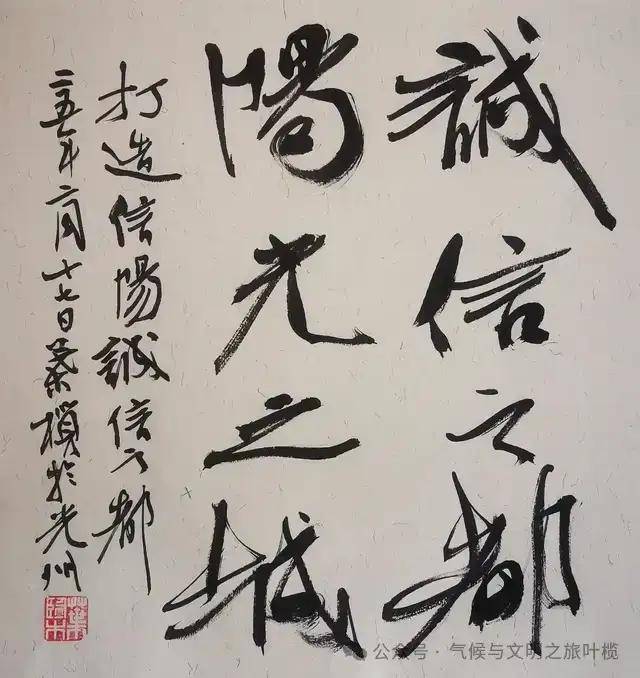 誠信之都
陽光之城
打造信陽誠信之都
二五年二月十七日葉欖於光州
公众号 · 气候与文明之旅叶榄